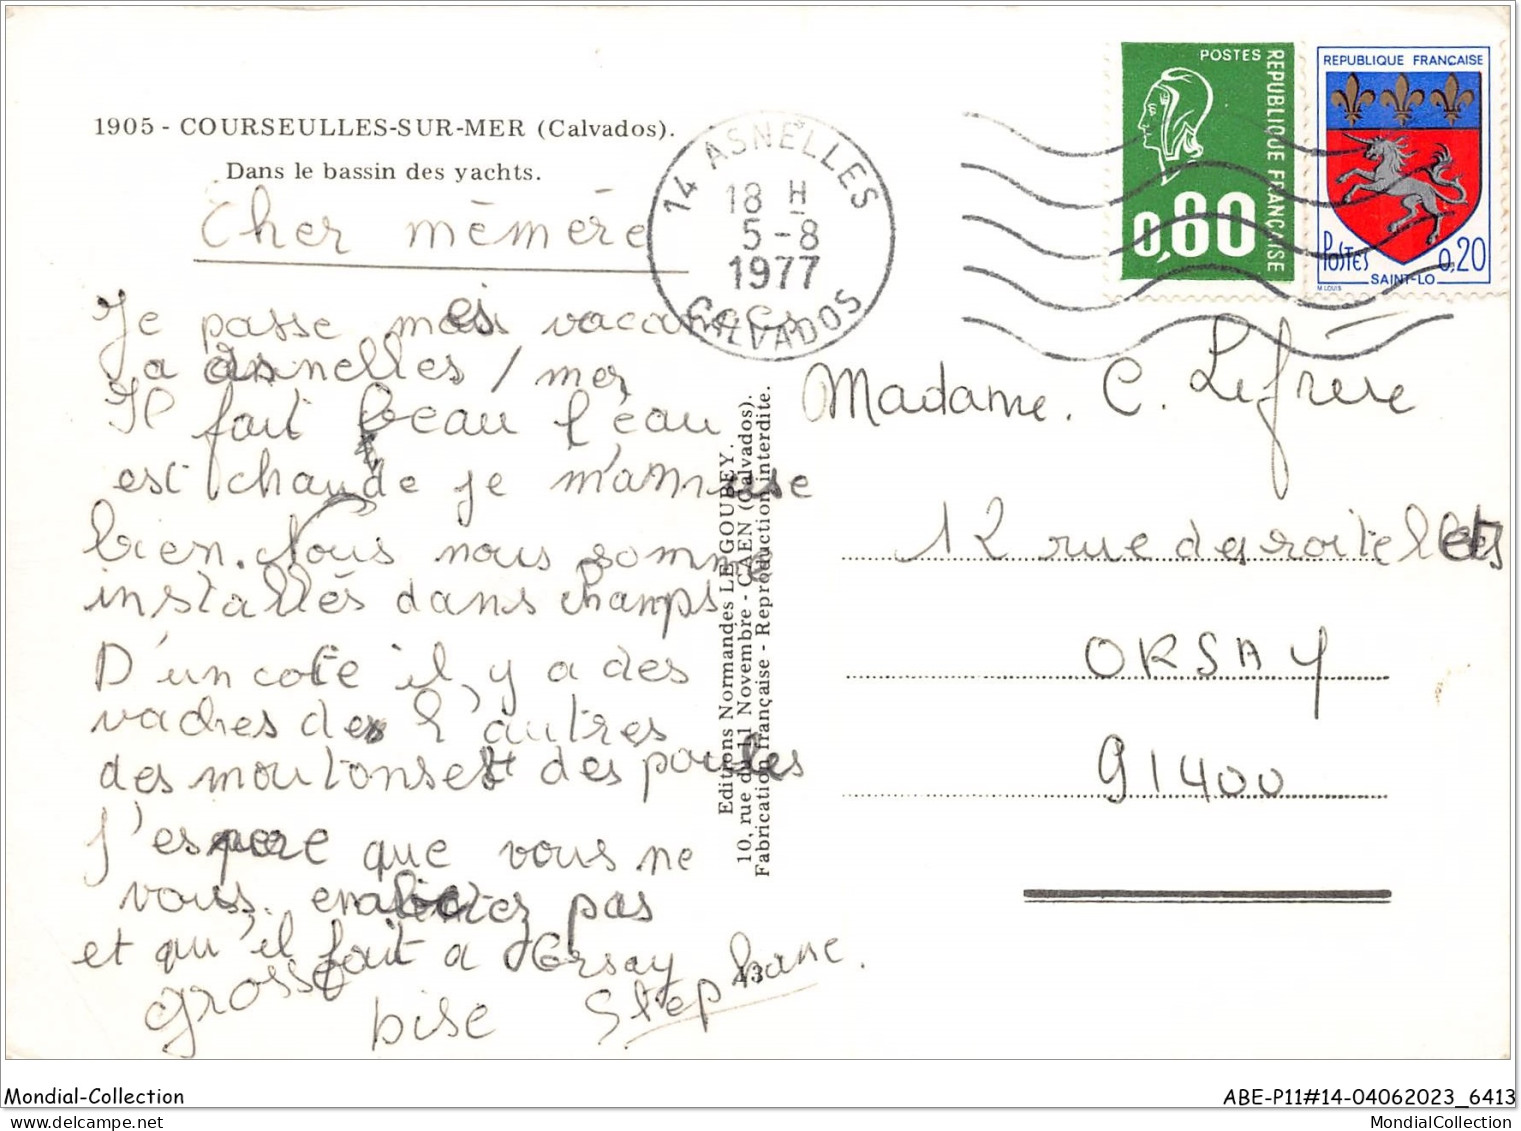 1905 - COURSEULLES-SUR-MER (Calvados).
Dans le bassin des yachts.
Cher mémére
Je passe mes vacances
a asnelles / mer
Il fait beau l'eau
est chaude je m'amuse
bien. Nous nous somme
installés dans champs
D'un cote il y a des
vaches de l'autres
des moutons et des poules
J'espere que vous ne
vous. pas
et qu'il fait a Orsay
grosse bise Stephane.
14 ASNELLES
18 H
5-8
1977
CALVADOS
POSTES
REPUBLIQUE FRANCAISE
0,80
REPUBLIQUE FRANÇAISE
POSTES
0,20
SAINT-LO
M LOUIS
Editions Normandes LE GOUBEY.
10, rue du 11 Novembre - CAEN (Calvados).
Fabrication française - Reproduction interdite.
43
Madame. C. Lefrère
12 rue des roitellets
ORSAY
91400
Mondial-Collection
ABE-P11#14-04062023_6413
mondial-collection
MondialCollection